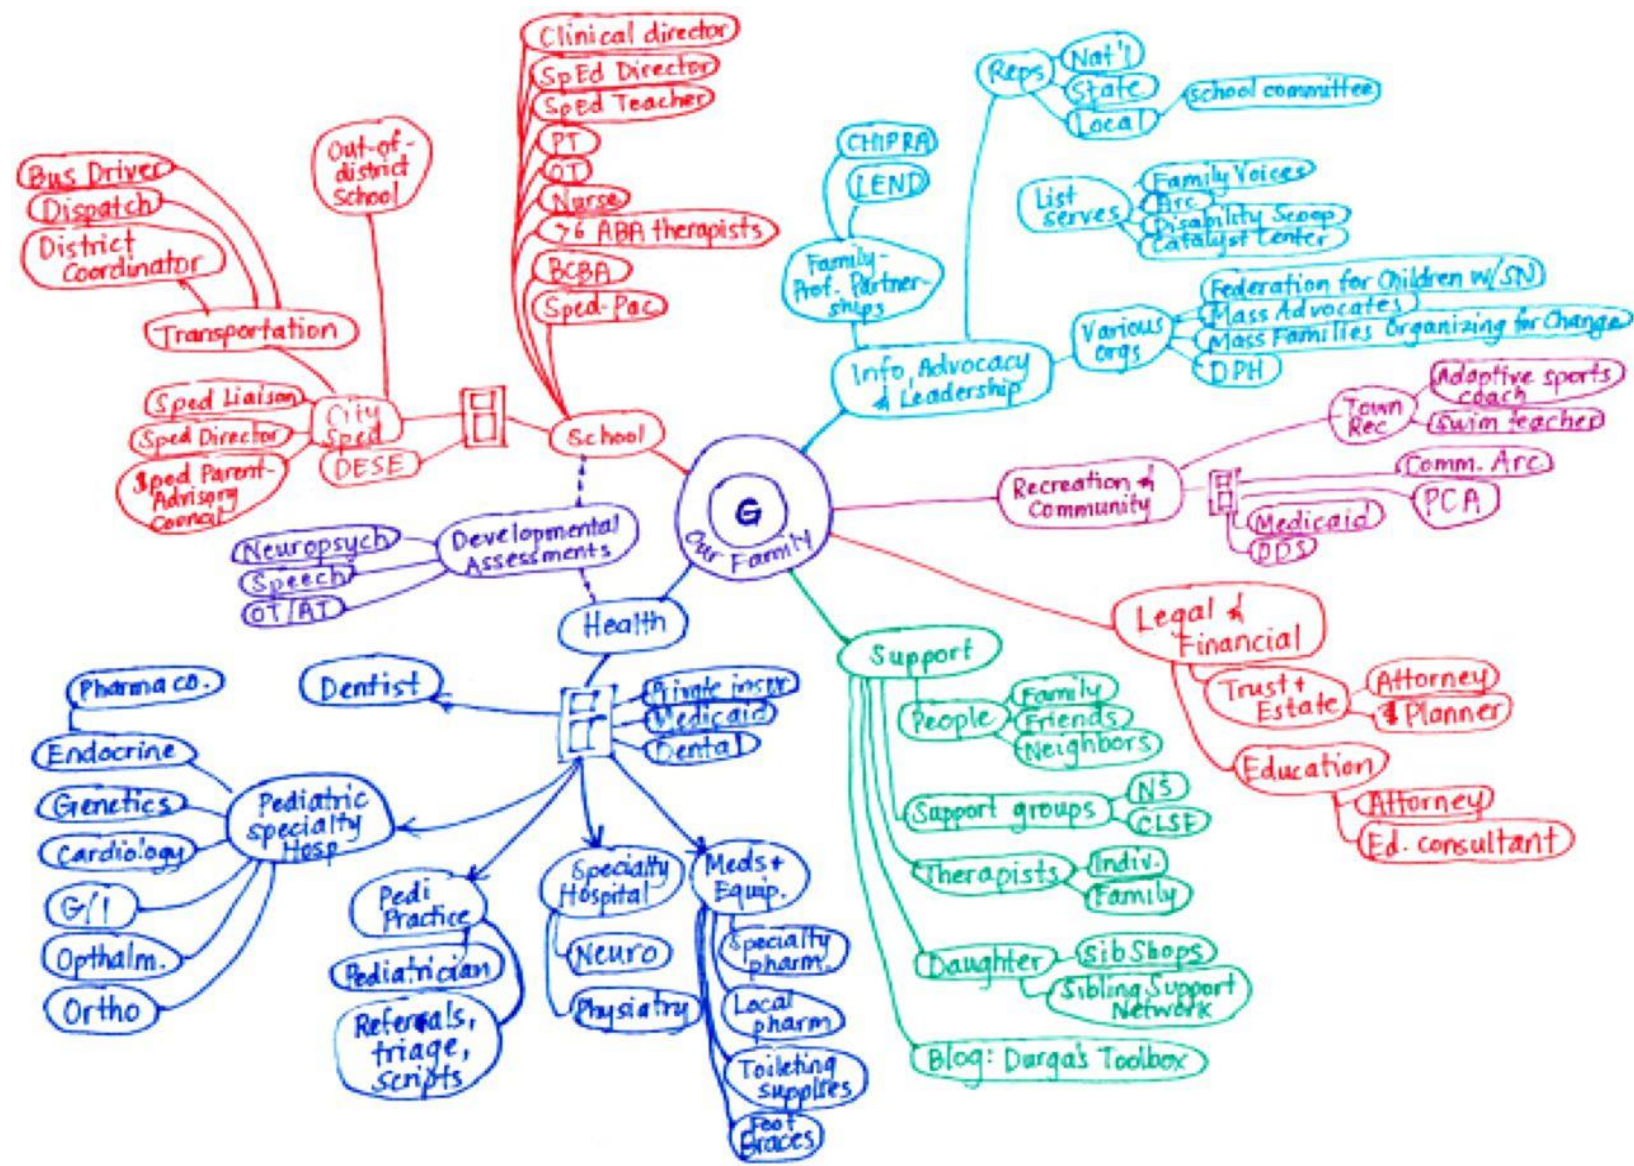 G
Our Family
School
Clinical director
SpEd Director
SpEd Teacher
PT
OT
Nurse
>6 ABA therapists
BCBA
Sped-Pac
City
Sped
DESE
Out-of-
district
School
Transportation
Bus Driver
Dispatch
District
Coordinator
Sped Liaison
Sped Director
Sped Parent-
Advisory
Council
Developmental
Assessments
Neuropsych
Speech
OT/AT
Health
Private insur
Medicaid
Dental
Dentist
Pediatric
specialty
Hosp
Pharma co.
Endocrine
Genetics
Cardiology
G/I
Opthalm.
Ortho
Pedi
Practice
Pediatrician
Referrals,
triage,
scripts
Specialty
Hospital
Neuro
Physiatry
Meds+
Equip.
Specialty
pharm.
Local
pharm
Toileting
supplies
Foot
Braces
Info, Advocacy
& Leadership
Family-
Prof. Partner-
ships
CHIPRA
LEND
Reps
Nat'l
State
Local
school committee
List
serves
Family Voices
Arc
Disability Scoop
Catalyst Center
Various
orgs
Federation for Children w/SN
Mass Advocates
Mass Families Organizing for Change
DPH
Recreation &
Community
Town
Rec
Adaptive sports
coach
Swim teacher
Comm. Arc
PCA
Medicaid
DDS
Legal &
Financial
Trust +
Estate
Attorney
$ Planner
Education
Attorney
Ed. consultant
Support
People
Family
Friends
Neighbors
Support groups
NS
CLSF
Therapists
Indiv.
Family
Daughter
SibShops
Sibling Support
Network
Blog: Durga's Toolbox